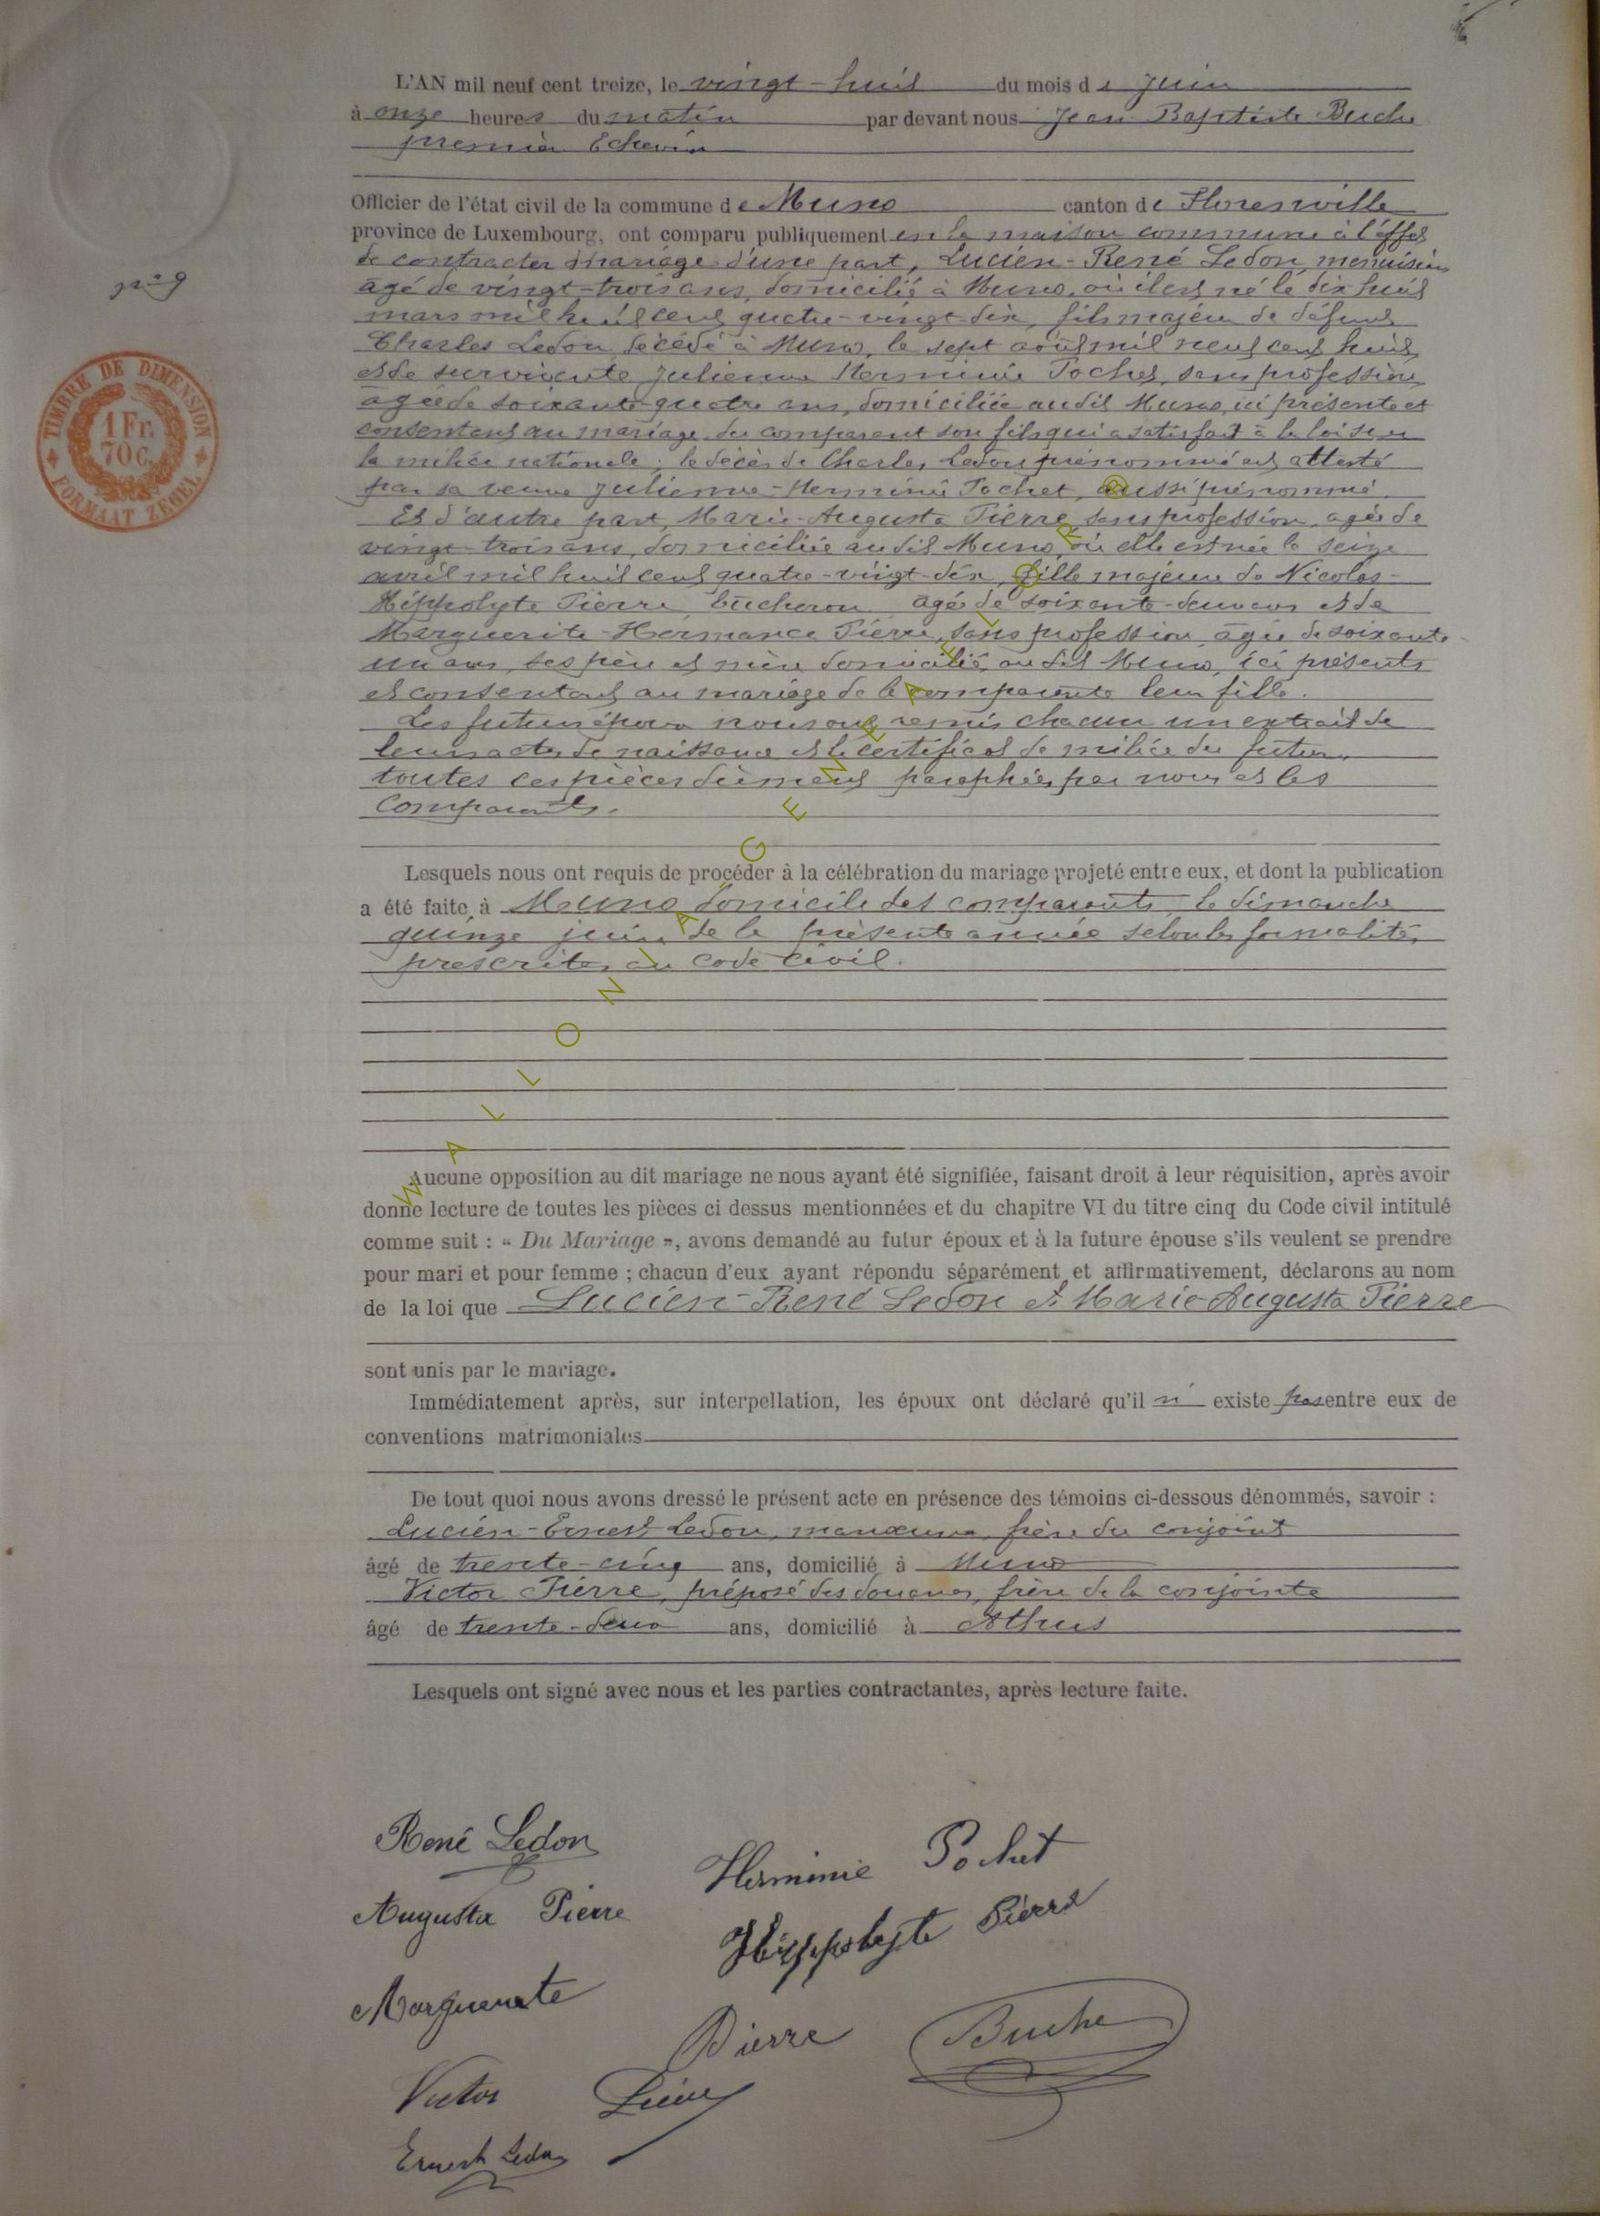 L'AN mil neuf cent treize, le vingt-huit du mois de Juin
à onze heures du matin par devant nous Jean Baptiste Buche
premier Echevin
Officier de l'état civil de la commune de Muno canton de Florenville
province de Luxembourg, ont comparu publiquement en la maison commune à l'effet
de contracter mariage d'une part, Lucien-René Ledon, menuisier
âgé de vingt-trois ans, domicilié à Muno, où il est né le dix huit
mars mil huit cent quatre-vingt-dix, fils majeur de défunt
Charles Ledon décédé à Muno, le sept août mil neuf cent huit
et de survivante Julienne Herminie Pochet, sans profession,
âgée de soixante-quatre ans, domiciliée audit Muno, ici présente et
consentant au mariage du comparant son fils qui a satisfait à la loi sur
la milice nationale ; le décès de Charles Ledon prénommé est attesté
par sa veuve Julienne-Herminie Pochet, aussi prénommé.
Et d'autre part, Marie-Augusta Pierre, sans profession, agée de
vingt-trois ans, domiciliée audit Muno, où elle est née le seize
avril mil huit cent quatre-vingt-dix, fille majeure de Nicolas-
Hippolyte Pierre, bûcheron agé de soixante-deux ans et de
Marguerite-Hermance Pierre, sans profession, agée de soixante-
un ans, ses père et mère domiciliés audit Muno, ici présents
et consentant au mariage de la comparante leur fille.
Les futurs époux nous ont remis chacun un extrait de
leurs actes de naissance et le certificat de milice du futur,
toutes ces pièces dûment paraphées par nous et les
comparants.
Lesquels nous ont requis de procéder à la célébration du mariage projeté entre eux, et dont la publication
a été faite à Muno domicile des comparants, le dimanche
quinze juin de la présente année selon les formalités
prescrites au code civil.
Aucune opposition au dit mariage ne nous ayant été signifiée, faisant droit à leur réquisition, après avoir
donne lecture de toutes les pièces ci dessus mentionnées et du chapitre VI du titre cinq du Code civil intitulé
comme suit : « Du Mariage », avons demandé au futur époux et à la future épouse s'ils veulent se prendre
pour mari et pour femme ; chacun d'eux ayant répondu séparément et affirmativement, déclarons au nom
de la loi que Lucien-René Ledon et Marie-Augusta Pierre
sont unis par le mariage.
Immédiatement après, sur interpellation, les époux ont déclaré qu'il n' existe pas entre eux de
conventions matrimoniales
De tout quoi nous avons dressé le présent acte en présence des témoins ci-dessous dénommés, savoir :
Lucien-Ernest Ledon, manœuvre, frère du conjoint
âgé de trente-cinq ans, domicilié à Muno
Victor Pierre, préposé des douanes, frère de la conjointe
âgé de trente-deux ans, domicilié à Athus
Lesquels ont signé avec nous et les parties contractantes, après lecture faite.
René Ledon
Herminie Pochet
Augusta Pierre
Hippolyte Pierre
Marguerite
Pierre
Buche
Victor Pierre
Ernest Ledon
n° 9
TIMBRE DE DIMENSION
1 Fr.
70 C.
FORMAAT ZEGEL
WALLONIA GENEAFLOR ®